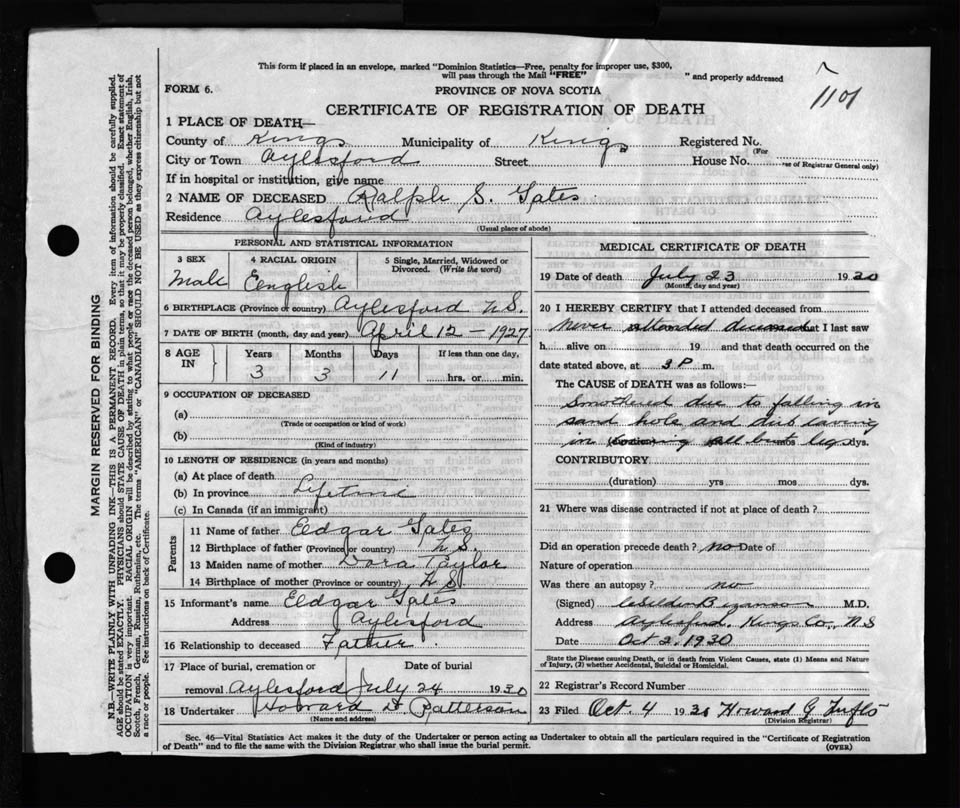 This form if placed in an envelope, marked "Dominion Statistics—Free, penalty for improper use, $300,
will pass through the Mail "FREE" " and properly addressed
1101
FORM 6.
PROVINCE OF NOVA SCOTIA
CERTIFICATE OF REGISTRATION OF DEATH
1 PLACE OF DEATH—
County of Kings Municipality of Kings Registered No.
(For use of Registrar General only)
City or Town Aylesford Street House No.
If in hospital or institution, give name
2 NAME OF DECEASED Ralph S. Gates
Residence Aylesford
(Usual place of abode)
PERSONAL AND STATISTICAL INFORMATION
3 SEX 4 RACIAL ORIGIN 5 Single, Married, Widowed or
Divorced. (Write the word)
Male English
6 BIRTHPLACE (Province or country) Aylesford N.S.
7 DATE OF BIRTH (month, day and year) April 12 – 1927
8 AGE IN Years Months Days If less than one day,
3 3 11 hrs. or min.
9 OCCUPATION OF DECEASED
(a)
(Trade or occupation or kind of work)
(b)
(Kind of industry)
10 LENGTH OF RESIDENCE (in years and months)
(a) At place of death
(b) In province Lifetime
(c) In Canada (if an immigrant)
Parents
11 Name of father Eldgar Gates
12 Birthplace of father (Province or country) N.S.
13 Maiden name of mother Dora Taylor
14 Birthplace of mother (Province or country) N.S.
15 Informant's name Eldgar Gates
Address Aylesford
16 Relationship to deceased Father
17 Place of burial, cremation or Date of burial
removal Aylesford July 24 1930
18 Undertaker Howard D. Patterson
(Name and address)
MEDICAL CERTIFICATE OF DEATH
19 Date of death July 23 1930
(Month, day and year)
20 I HEREBY CERTIFY that I attended deceased from
Never attended deceased I last saw
h alive on 19 and that death occurred on
date stated above, at 3 P m.
The CAUSE of DEATH was as follows:—
Smothered due to falling in
sand hole and dirt caving
in (duration) covering all but legs mos dys.
CONTRIBUTORY
(duration) yrs mos dys.
21 Where was disease contracted if not at place of death?
Did an operation precede death? no Date of
Nature of operation
Was there an autopsy? no
(Signed) Bezanson M.D.
Address Aylesford, Kings Co, N S
Date Oct 2, 1930
State the Disease causing Death, or in death from Violent Causes, state (1) Means and Nature
of Injury, (2) whether Accidental, Suicidal or Homicidal.
22 Registrar's Record Number
23 Filed Oct. 4 1930 Howard G
(Division Registrar)
Sec. 46—Vital Statistics Act makes it the duty of the Undertaker or person acting as Undertaker to obtain all the particulars required in the "Certificate of Registration
of Death" and to file the same with the Division Registrar who shall issue the burial permit.
(OVER)
MARGIN RESERVED FOR BINDING
N.B.—WRITE PLAINLY WITH UNFADING INK—THIS IS A PERMANENT RECORD. Every item of information should be carefully supplied.
AGE should be stated EXACTLY. PHYSICIANS should STATE CAUSE OF DEATH in plain terms, so that it may be properly classified. Exact statement of
OCCUPATION is very important. RACIAL ORIGIN will be described by stating to what people or race the deceased person belonged, whether English, Irish,
Scotch, French, German, Russian, Ruthenian, etc. The terms "AMERICAN" or "CANADIAN" SHOULD NOT BE USED as they express citizenship but not
a race or people. See instructions on back of Certificate.